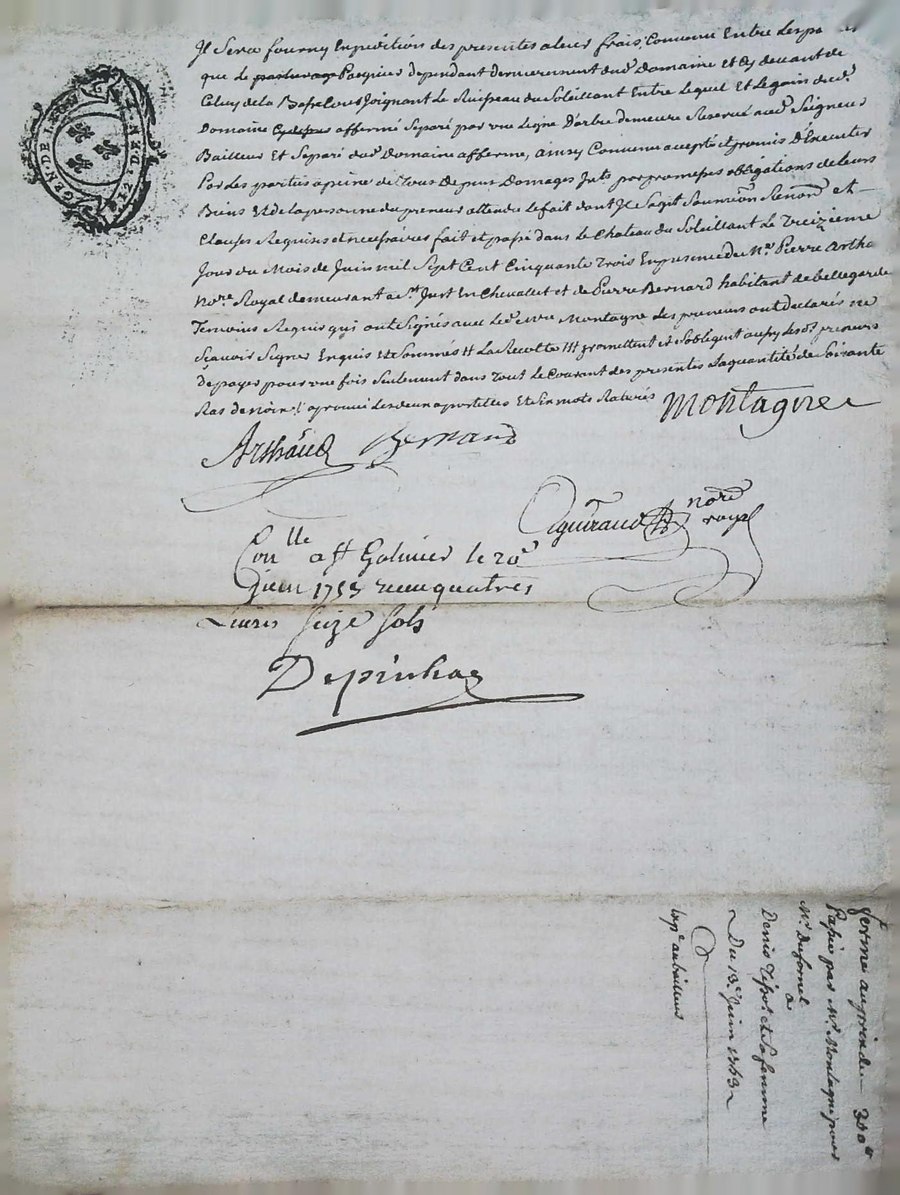 GEN DE LYON
Il Sera fourny Expédition des presentes a leur frais, Convenu Entre Les
que le Pasquier dependant dernierement dud. Domaine et Cy devant de
Celuy de la Joignant Le Ruisseau du Soleillant Entre Lequel Et Le gain dud.
Domaine affermé Separé par une Ligne D'arbre demeure Reservé aud. Seigneur
Bailleur Et Separé dud. Domaine affermé, ainsy Convenu accepté et promis D'Executer
Par Les parties a peine de Tous Depens Domages Jnts par promesses obligations de Leurs
Biens Et de La personne du preneur attendu Le fait dont Jl Sagit Soumission Renonon et
Clauses Requises et necessaires fait et passé dans Le Chateau du Soleillant Le Treizieme
Jour du Mois de Juin mil Sept Cent Cinquante Trois En presence de Me. Pierre Artha
Nore. Royal demeurant a St. Just En Chevalet et de Pierre Bernard habitant de bellegarde
Temoins Requis qui ont Signés avec Led. Montagne Les preneurs ont declarés ne
Sçavoir Signer Enquis Et Sommés # La Recolte ## promettent et S'obligent aussy Lesds. preneurs
De payer pour une fois Seulement dans Tout Le Courant des presentes La quantité de Soixante
Ras de approuvé Les deux apostilles Et mots Raturés
Montagne
Arthaud Bernard
nore
royal
Conlle a St Galmier le 20e
Juin 1753 Receu quatres
Livres Seize Sols
Depinhac
ferme au prix de 300 lt
Passée par Mr. Montagne pour
Mr. Dufornel
a
Denis Tissot et Sa femme
Du 13e Juin 1753
Expe. au bailleur